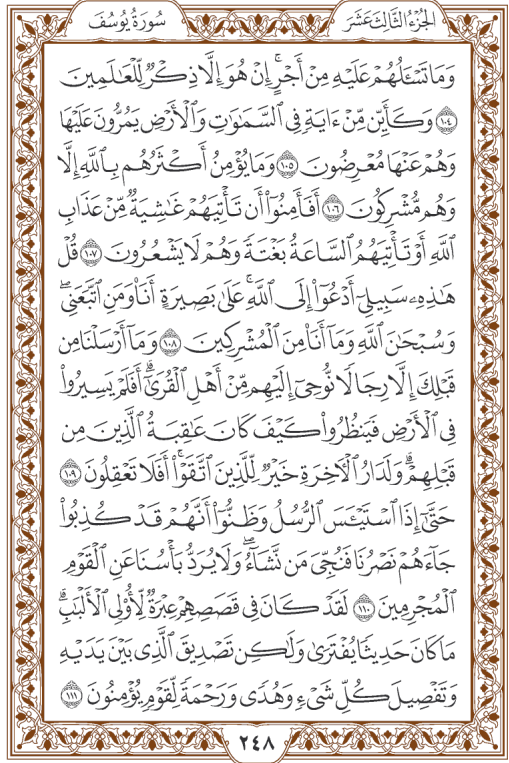 الجزء الثالث عشر
سورة يوسف
وَمَا تَسْـَٔلُهُمْ عَلَيْهِ مِنْ أَجْرٍۚ إِنْ هُوَ إِلَّا ذِكْرٌ لِّلْعَٰلَمِينَ
١٠٤ وَكَأَيِّن مِّنْ ءَايَةٍ فِي ٱلسَّمَٰوَٰتِ وَٱلْأَرْضِ يَمُرُّونَ عَلَيْهَا
وَهُمْ عَنْهَا مُعْرِضُونَ ١٠٥ وَمَا يُؤْمِنُ أَكْثَرُهُم بِٱللَّهِ إِلَّا
وَهُم مُّشْرِكُونَ ١٠٦ أَفَأَمِنُوٓا۟ أَن تَأْتِيَهُمْ غَٰشِيَةٌ مِّنْ عَذَابِ
ٱللَّهِ أَوْ تَأْتِيَهُمُ ٱلسَّاعَةُ بَغْتَةً وَهُمْ لَا يَشْعُرُونَ ١٠٧ قُلْ
هَٰذِهِۦ سَبِيلِيٓ أَدْعُوٓا۟ إِلَى ٱللَّهِۚ عَلَىٰ بَصِيرَةٍ أَنَا۠ وَمَنِ ٱتَّبَعَنِيۖ
وَسُبْحَٰنَ ٱللَّهِ وَمَآ أَنَا۠ مِنَ ٱلْمُشْرِكِينَ ١٠٨ وَمَآ أَرْسَلْنَا مِن
قَبْلِكَ إِلَّا رِجَالًا نُّوحِيٓ إِلَيْهِم مِّنْ أَهْلِ ٱلْقُرَىٰٓۗ أَفَلَمْ يَسِيرُوا۟
فِي ٱلْأَرْضِ فَيَنظُرُوا۟ كَيْفَ كَانَ عَٰقِبَةُ ٱلَّذِينَ مِن
قَبْلِهِمْۗ وَلَدَارُ ٱلْءَاخِرَةِ خَيْرٌ لِّلَّذِينَ ٱتَّقَوْا۟ۚ أَفَلَا تَعْقِلُونَ ١٠٩
حَتَّىٰٓ إِذَا ٱسْتَيْـَٔسَ ٱلرُّسُلُ وَظَنُّوٓا۟ أَنَّهُمْ قَدْ كُذِبُوا۟
جَآءَهُمْ نَصْرُنَا فَنُجِّيَ مَن نَّشَآءُۖ وَلَا يُرَدُّ بَأْسُنَا عَنِ ٱلْقَوْمِ
ٱلْمُجْرِمِينَ ١١٠ لَقَدْ كَانَ فِي قَصَصِهِمْ عِبْرَةٌ لِّأُو۟لِي ٱلْأَلْبَٰبِۗ
مَا كَانَ حَدِيثًا يُفْتَرَىٰ وَلَٰكِن تَصْدِيقَ ٱلَّذِي بَيْنَ يَدَيْهِ
وَتَفْصِيلَ كُلِّ شَيْءٍ وَهُدًى وَرَحْمَةً لِّقَوْمٍ يُؤْمِنُونَ ١١١
٢٤٨